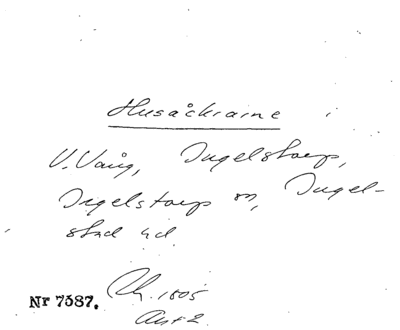 Husåkrarne
V. Vång, Ingelstorp,
Ingelstorp sn, Ingel-
stad hd.
Nr 7587.
1805
Akt 2